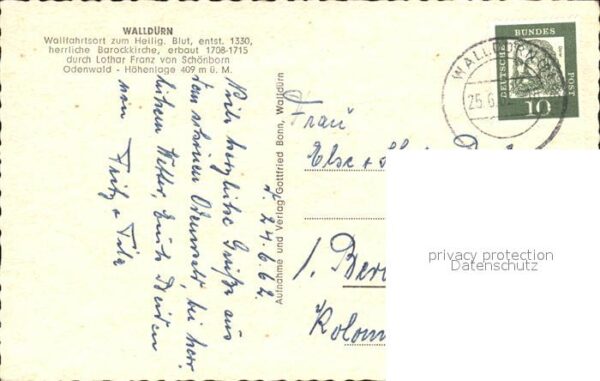 WALLDÜRN
Wallfahrtsort zum Heilig. Blut, entst. 1330,
herrliche Barockkirche, erbaut 1708-1715
durch Lothar Franz von Schönborn
Odenwald - Höhenlage 409 m ü. M.
Viele herzliche Grüße aus
dem schönen Odenwald, bei herr-
lichem Wetter,
von Fritz +
d. 24.6.62.
Aufnahme und Verlag Gottfried Bonn, Walldürn
WALLDÜRN
25.6.
DEUTSCHE
BUNDES
POST
10
Frau
Else
1. Berl
Kolon
privacy protection
Datenschutz